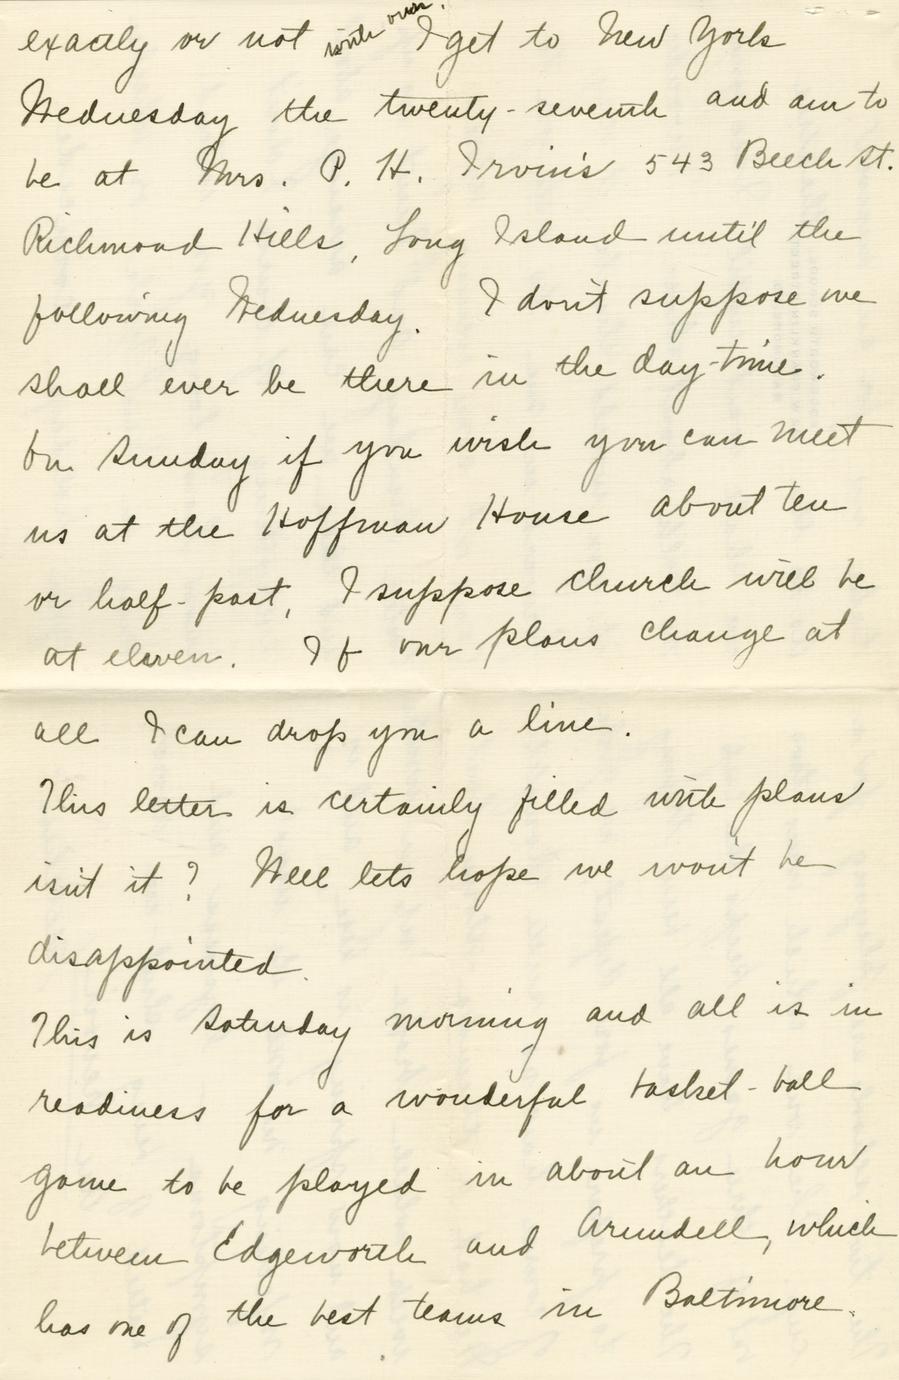 exactly or not with ours. I get to New York
Wednesday the twenty-seventh and am to
be at Mrs. P. H. Irvin's 543 Beech St.
Richmond Hills, Long Island until the
following Wednesday. I don't suppose we
shall ever be there in the day-time.
On Sunday if you wish you can meet
us at the Hoffman House about ten
or half-past, I suppose church will be
at eleven. If our plans change at
all I can drop you a line.
This letter is certainly filled with plans
isn't it? Well lets hope we won't be
disappointed.
This is Saturday morning and all is in
readiness for a wonderful basket-ball
game to be played in about an hour
between Edgeworth and Arundell, which
has one of the best teams in Baltimore.